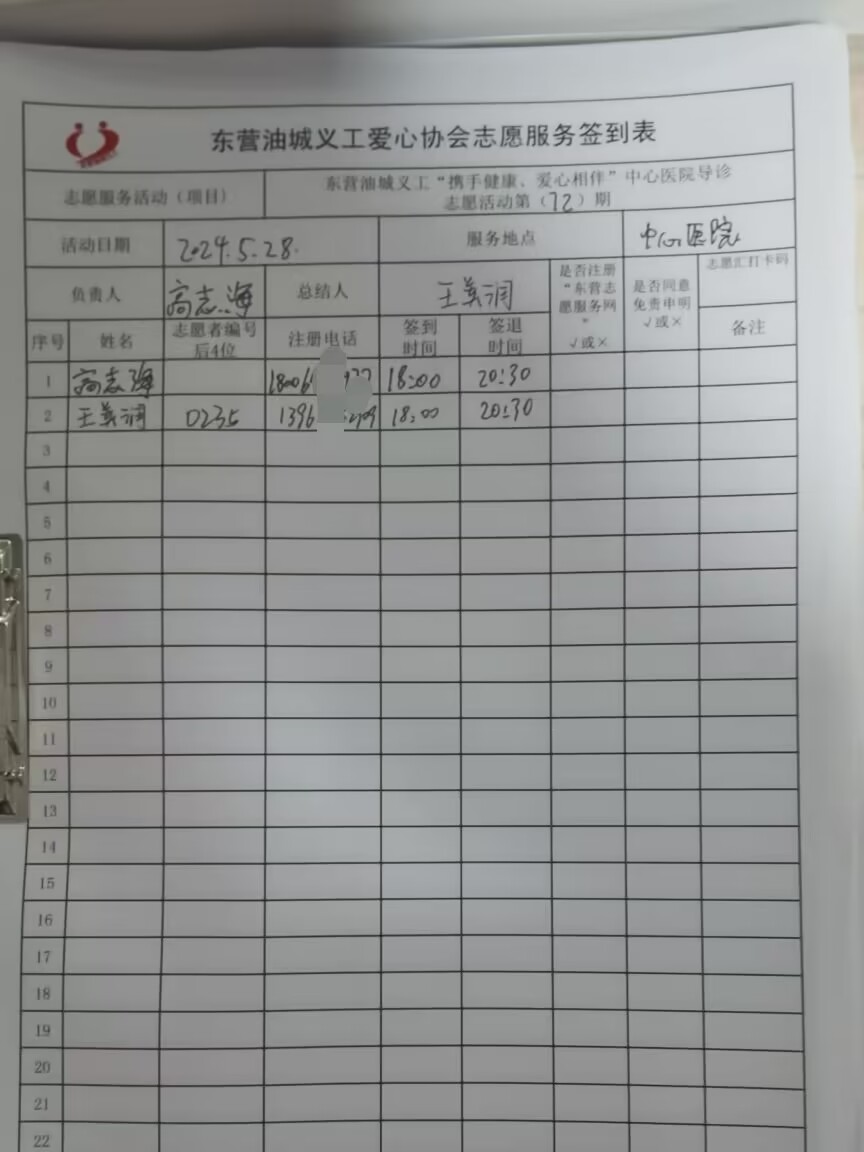 东营油城义工爱心协会志愿服务签到表
志愿服务活动（项目） 东营油城义工“携手健康、爱心相伴”中心医院导诊
志愿活动第（72）期
活动日期 2024.5.28. 服务地点 中心医院
负责人 高志海 总结人 王美润 是否注册“东营志愿服务网” √或× 是否同意免责申明 √或× 志愿汇打卡码
序号 姓名 志愿者编号后4位 注册电话 签到时间 签退时间 备注
1 高志海 18:00 20:30
2 王美润 0235 18:00 20:30
3
4
5
6
7
8
9
10
11
12
13
14
15
16
17
18
19
20
21
22